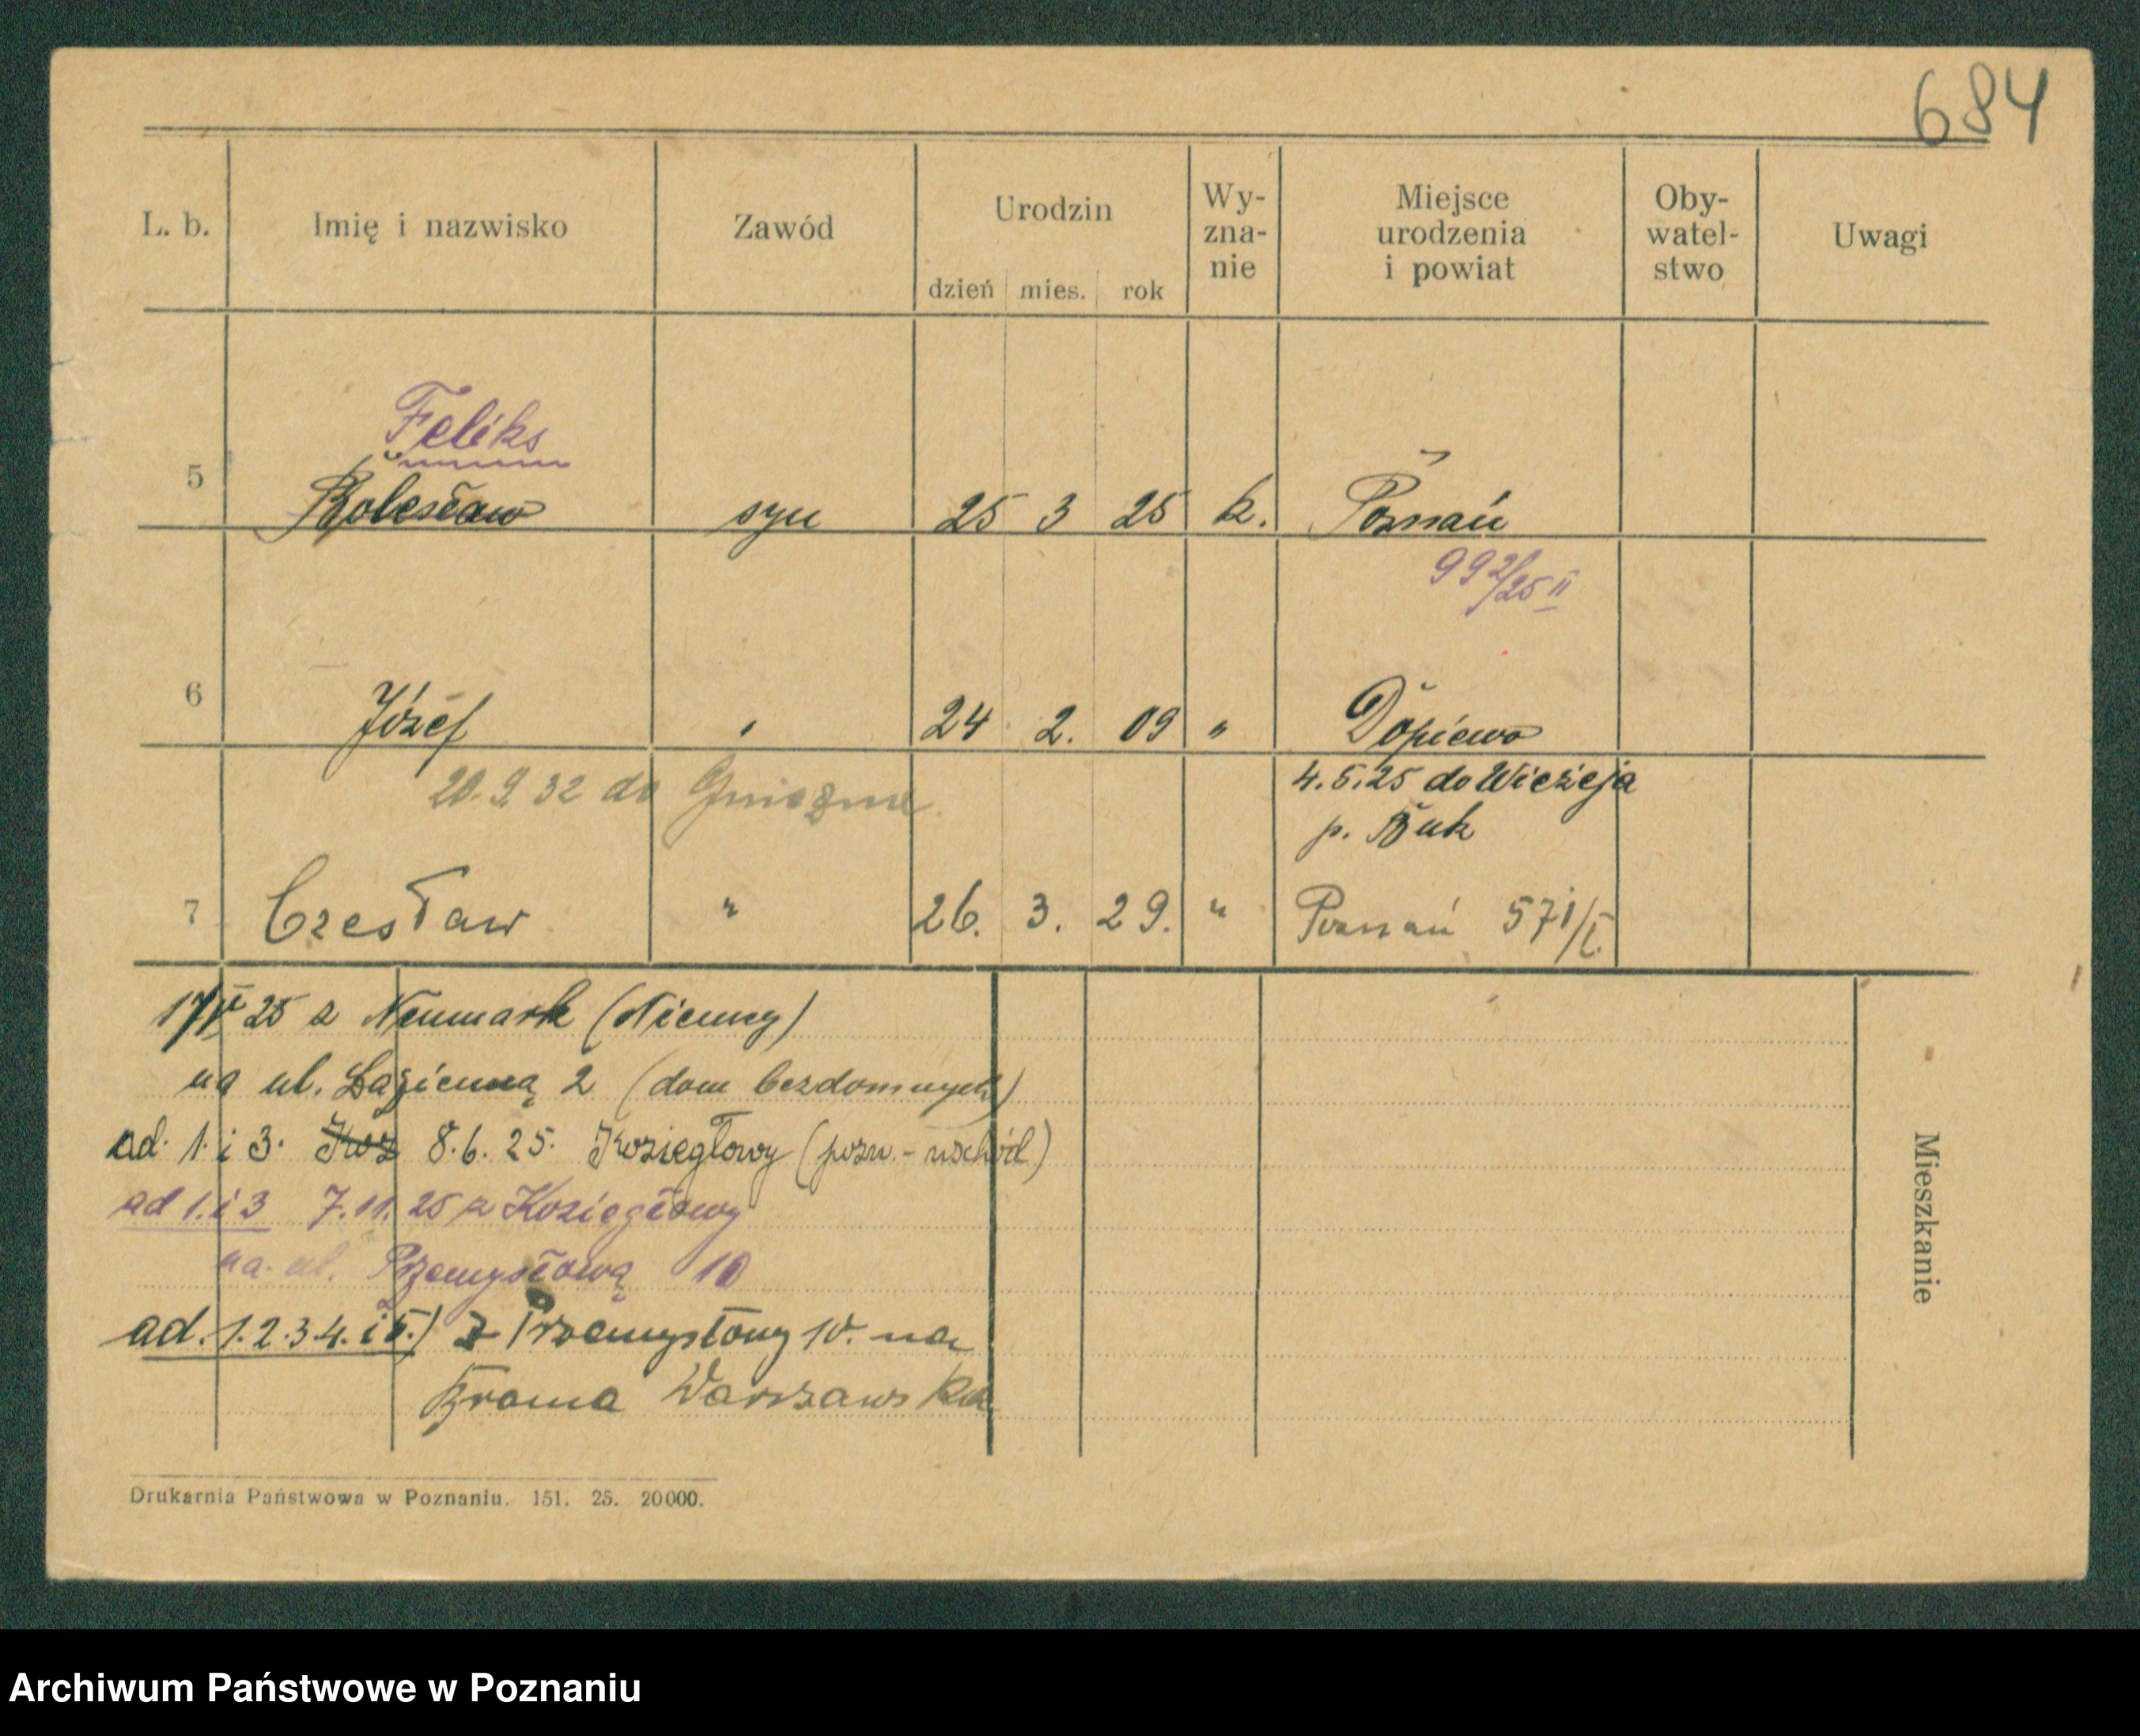 684
L. b. Imię i nazwisko Zawód Urodzin Wy- Miejsce Oby- Uwagi
zna- urodzenia watel-
nie i powiat stwo
dzień mies. rok
Feliks
5 Bolesław syn 25 3 25 k. Poznań
992/25 II
6 Józef " 24 2. 09 " Dopiewo
20. 9 32 do Gniezna 4.5.25 do Wieżeja
p. Buk
7 Czesław " 26. 3. 29. " Poznań 571/I.
17/V 25 z Neumark (Niemcy)
na ul. Łazienną 2 (dom bezdomnych)
ad. 1. i 3. Koz 8.6.25. Koziegłowy (pozn.-wschód)
ad 1. i 3 7.11.25 z Koziegłowy
na ul. Przemysłową 10
ad. 1.2.3 4. i 5.) z Przemysłowy 10. na
Brama Warszawska
Mieszkanie
Drukarnia Państwowa w Poznaniu. 151. 25. 20000.
Archiwum Państwowe w Poznaniu